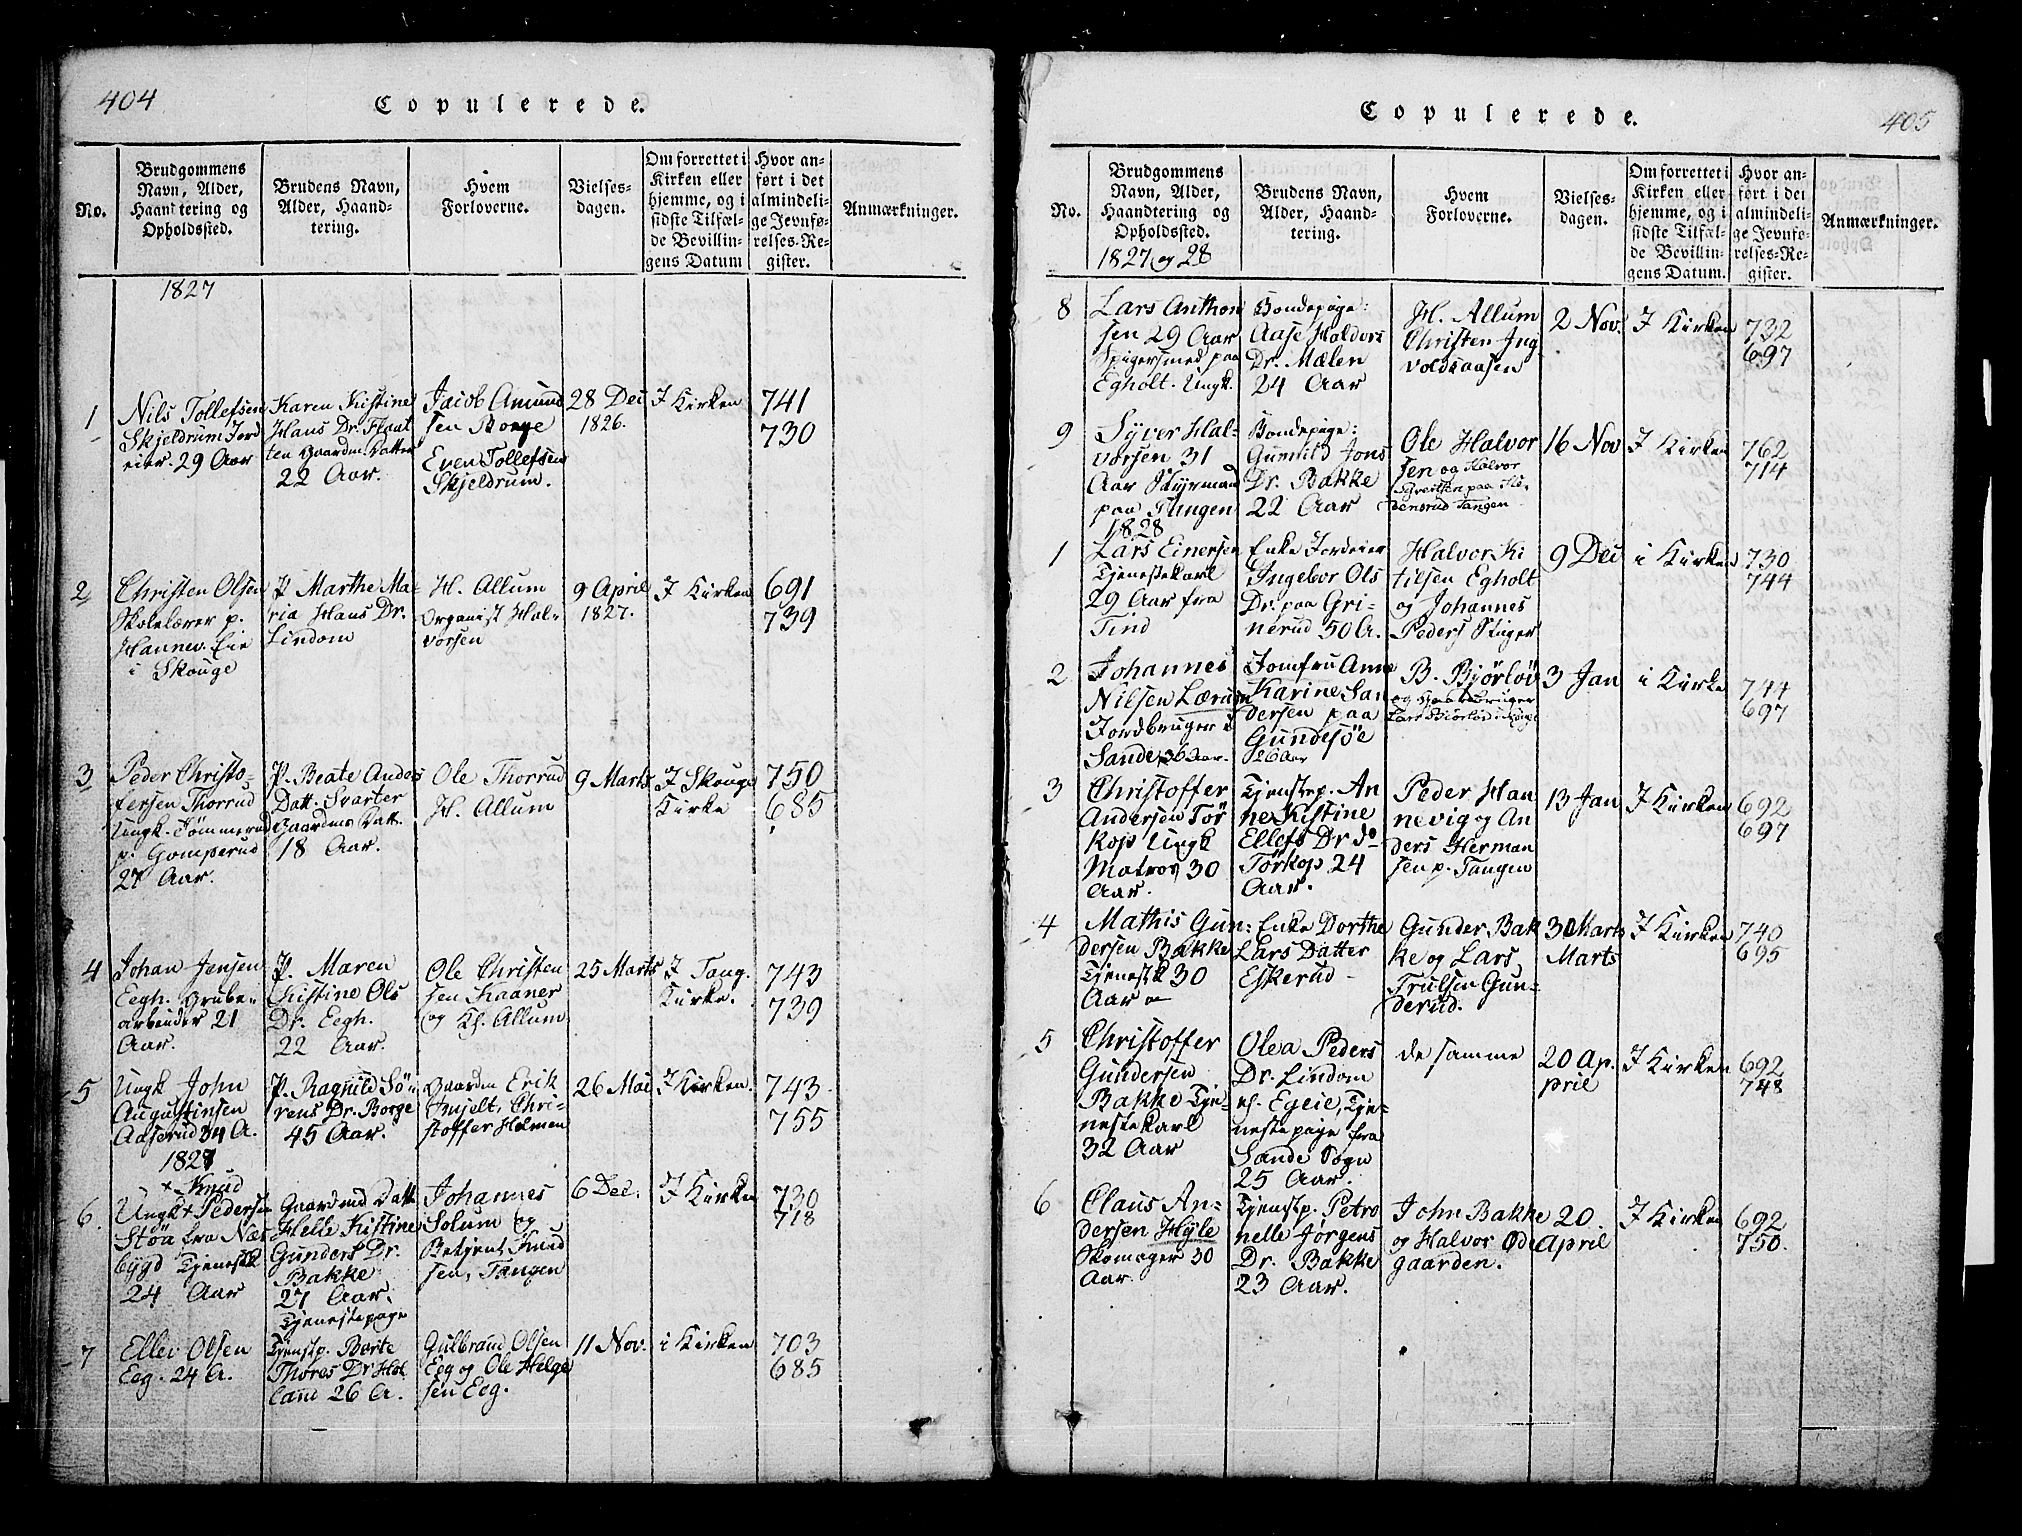 404
Copulerede.
No.
Brudgommens
Navn, Alder,
Haandtering og
Opholdssted.
Brudens Navn,
Alder, Haand-
tering.
Hvem
Forloverne.
Vielses-
dagen.
Om forrettet i
Kirken eller
hjemme, og i
sidste Tilfæl-
de Bevillin-
gens Datum
Hvor an-
ført i det
almindeli-
ge Jevnfø-
relses-Re-
gister.
Anmærkninger.
1827
1
Nils Tollefsen
Skjeldrum Jord
eier. 29 Aar
Karen Kistine
Hans Dr. Flaat
ten Gaardm. Datter
22 Aar.
Jacob Amund
sen Borge
Even Tollefsen
Skjeldrum.
28 Dec
1826.
I Kirken
741
730
2
Christen Olsen
Skolelærer p.
Hannev. Eie
i Skouge
P. Marthe Ma-
ria Hans Dr.
Lindom
H. Allum
Organist Hal-
vorsen
9 April
1827.
I Kirken
691
739
3
Peder Christo-
fersen Thorrud
Ungk. Tømmer
p. Gomperud
27 Aar.
P. Beate Anders
Datt. Svarter
Gaardms Datt.
18 Aar.
Ole Thorrud
H. Allum
9 Marts
I Skouge
Kirke
750
685
4
Johan Jensen
Eegh. Grube-
arbeider 21
Aar.
P. Maren
Kistine Ols
Dr. Eegh.
22 Aar.
Ole Christen
sen Kaaner
og H. Allum
25 Marts
I Tang.
Kirke.
743
739
5
Ungk John
Augustinsen
Aaserud 34 A.
P. Ragnild Sø-
rens Dr. Borge
45 Aar.
Gaardm Erik
Smjelt, Chri-
stoffer Holmen
26 Mai
I Kirken.
743
755
1827
6.
x Knud
Ungk x Pedersen
Støa fra Næs
bÿgd Tjenestk
24 Aar
Gaardmd Datt
Helle Kistine
Gunders Dr.
Bakke
27 Aar.
Tjenestepige
Johannes
Solum og
Betjent Knud
sen, Tangen
6 Dec.
I Kirken
730
718
7
Ellev Olsen
Eeg. 24 A.
Tjenstp. Berte
Thores Dr Hol
land 26 A.
Gulbrand Olsen
Eeg og Ole Helge
sen Eeg.
11 Nov.
i Kirken
703
685
Copulerede.
405
No.
Brudgommens
Navn, Alder,
Haandtering og
Opholdssted.
1827 og 28
Brudens Navn,
Alder, Haand-
tering.
Hvem
Forloverne.
Vielses-
dagen.
Om forrettet i
Kirken eller
hjemme, og i
sidste Tilfæl-
de Bevillin-
gens Datum.
Hvor an-
ført i det
almindeli-
ge Jevnfø-
relses-Re-
gister.
Anmærkninger.
8
Lars Anthon
sen 29 Aar
Spigersmed paa
Egholt. Ungk.
Bondepige:
Aase Haldors
Dr. Mælen
24 Aar
H. Allum
Christen Ing
voldsaasen
2 Nov.
I Kirken
732
697
9
Sÿver Hal-
vorsen 31
Aar Stÿrmand
paa Tangen
Bondepige:
Gunild Jons
Dr. Bakke
22 Aar
Ole Halvor
sen og Halvor
Tangen
16 Nov
I Kirken
762
714
1828
1
Lars Einersen
Tjenestekarl
29 Aar fra
Tind
Enke Jordeier
Ingebor Ols
Dr. paa Gri-
nerud 50 A.
Halvor Ki
tilsen Egholt
og Johannes
Peders Stuger
9 Dec
i Kirken
730
744
2
Johannes
Nilsen Lærum
Jordbruger i
Sande, 36 Aar.
Jomfru Anne
Karine San
dersen paa
Gundesøe
26 Aar
B. Bjørløv
og Gaardbruger
3 Jan
i Kirke
744
697
3
Christoffer
Andersen Tør
kop Ungk
Matros 30
Aar.
Tjenstep. An
ne Kistine
Ellefs Dr do
Tørkop 24
Aar.
Peder Han
nevig og An
ders Herman
sen p. Tangen
13 Jan
I Kirken
692
697
4
Mathis Gun-
dersen Bakke
Tjenestk 30
Aar
Enke Dorthe
Lars Datter
Eskerud -
Gunder Bak
ke og Lars
Trulsen Gun-
derud.
30 Marts
Marts
I Kirken
740
695
5
Christoffer
Gundersen
Bakke Tje-
nestekarl
32 Aar
Olea Peders
Dr. Lindom
Egeie, Tje-
nestepige fra
Sande Sogn
25 Aar.
de samme
20 Ap.
pril
I Kirken
692
748
6
Claus An-
dersen Hÿle
Skomager 30
Aar.
Tjenstp. Petro
nelle Jørgens
Dr. Bakke
23 Aar.
John Bakke
og Halvor Øde
gaarden.
20.
April
I Kirken
692
750.